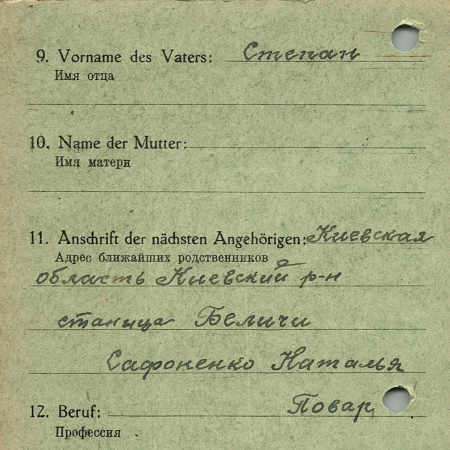 9. Vorname des Vaters: Степан
Имя отца
10. Name der Mutter:
Имя матери
11. Anschrift der nächsten Angehörigen: Киевская
Адрес ближайших родственников
область Киевский р-н
станица Беличи
Сафоненко Наталья
12. Beruf: Повар
Профессия